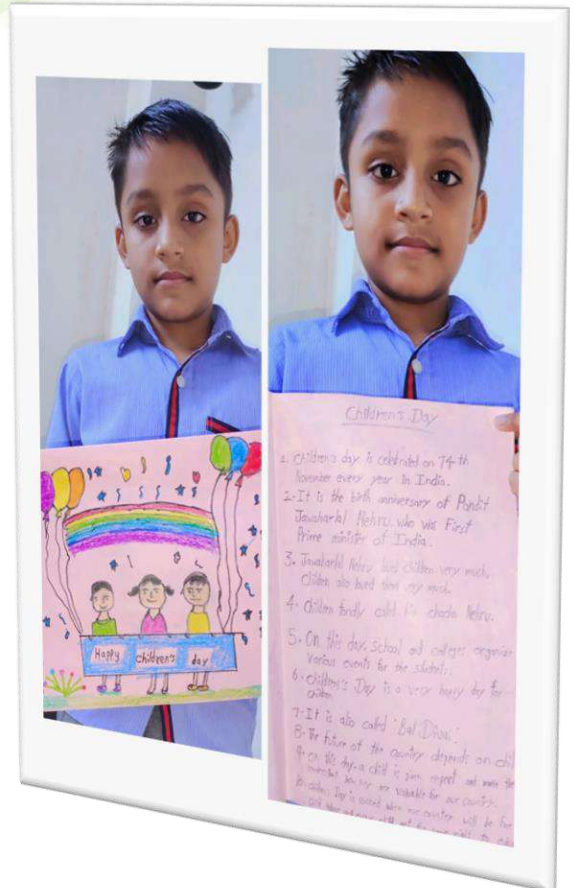 Happy Children's day
Children's Day
1. Children's day is celebrated on 14th
November every year in India.
2. It is the birth anniversary of Pandit
Jawaharlal Nehru, who was First
Prime minister of India.
3. Jawaharlal Nehru loved children very much.
Children also loved him very much.
4. Children fondly called chacha Nehru.
5. On this day, school and colleges organize
various events for the students.
6. Children's Day is a very happy day for
children
7. It is also called "Bal Diwas".
8. The future of the country depends on
9. On this day, a child is given respect and
are valuable for our country.
Day is when our country will be
child the right to